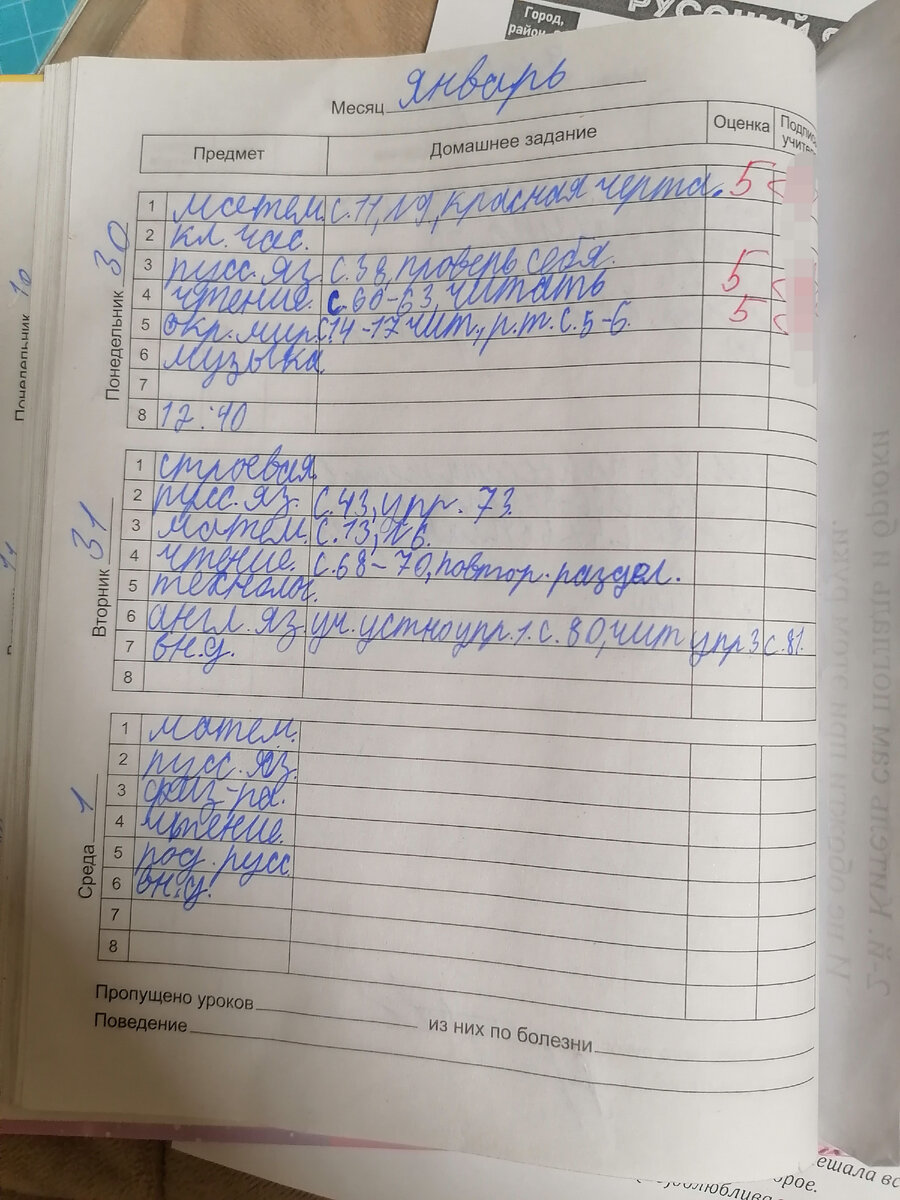 Город,
район,
РУССКИЙ
Месяц январь
Предмет Домашнее задание Оценка Подпись учителя
Понедельник 30
1 матем. с. 11, №9, красная черта. 5
2 кл. час.
3 русс. яз. с. 38, проверь себя.
4 чтение. с. 60-63, читать 5
5 окр. мир. с. 14-17 чит., р.т. с. 5-6. 5
6 музыка.
7
8 12:40
Вторник 31
1 строевая
2 русс. яз. с. 43, упр. 73.
3 матем. с. 13, №6.
4 чтение. с. 68-70, повтор. раздел.
5 технолог.
6 англ. яз. уч. устно упр. 1. с. 80, чит упр 3 с. 81.
7 вн. д.
8
Среда 1
1 матем.
2 русс. яз.
3 физ-ра.
4 чтение.
5 род. русс
6 вн. д.
7
8
Пропущено уроков из них по болезни
Поведение
Понедельник